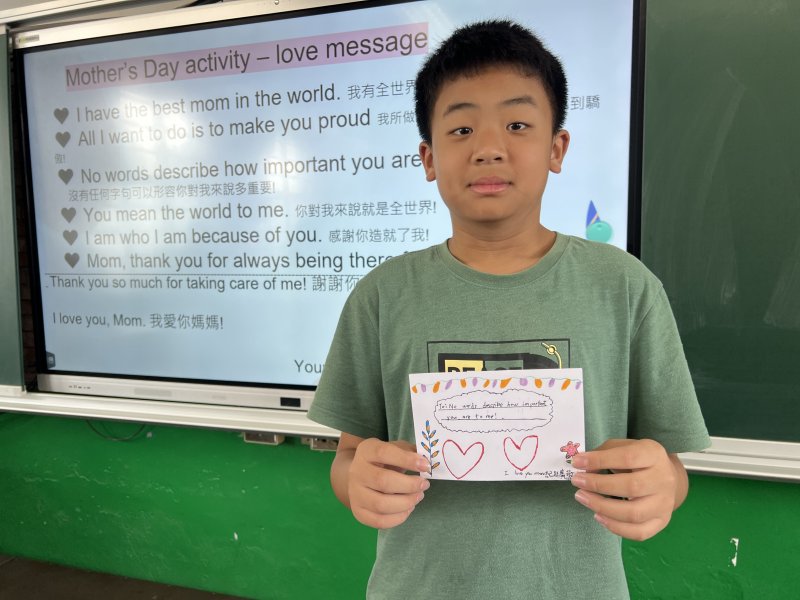 Mother's Day activity – love message
I have the best mom in the world. 我有全世界
All I want to do is to make you proud 我所做 到驕
傲!
No words describe how important you are
沒有任何字句可以形容你對我來說多重要!
You mean the world to me. 你對我來說就是全世界!
I am who I am because of you. 感謝你造就了我!
Mom, thank you for always being there
Thank you so much for taking care of me! 謝謝你
I love you, Mom. 我愛你媽媽!
To: No words describe how important
you are to me!
I love you mom